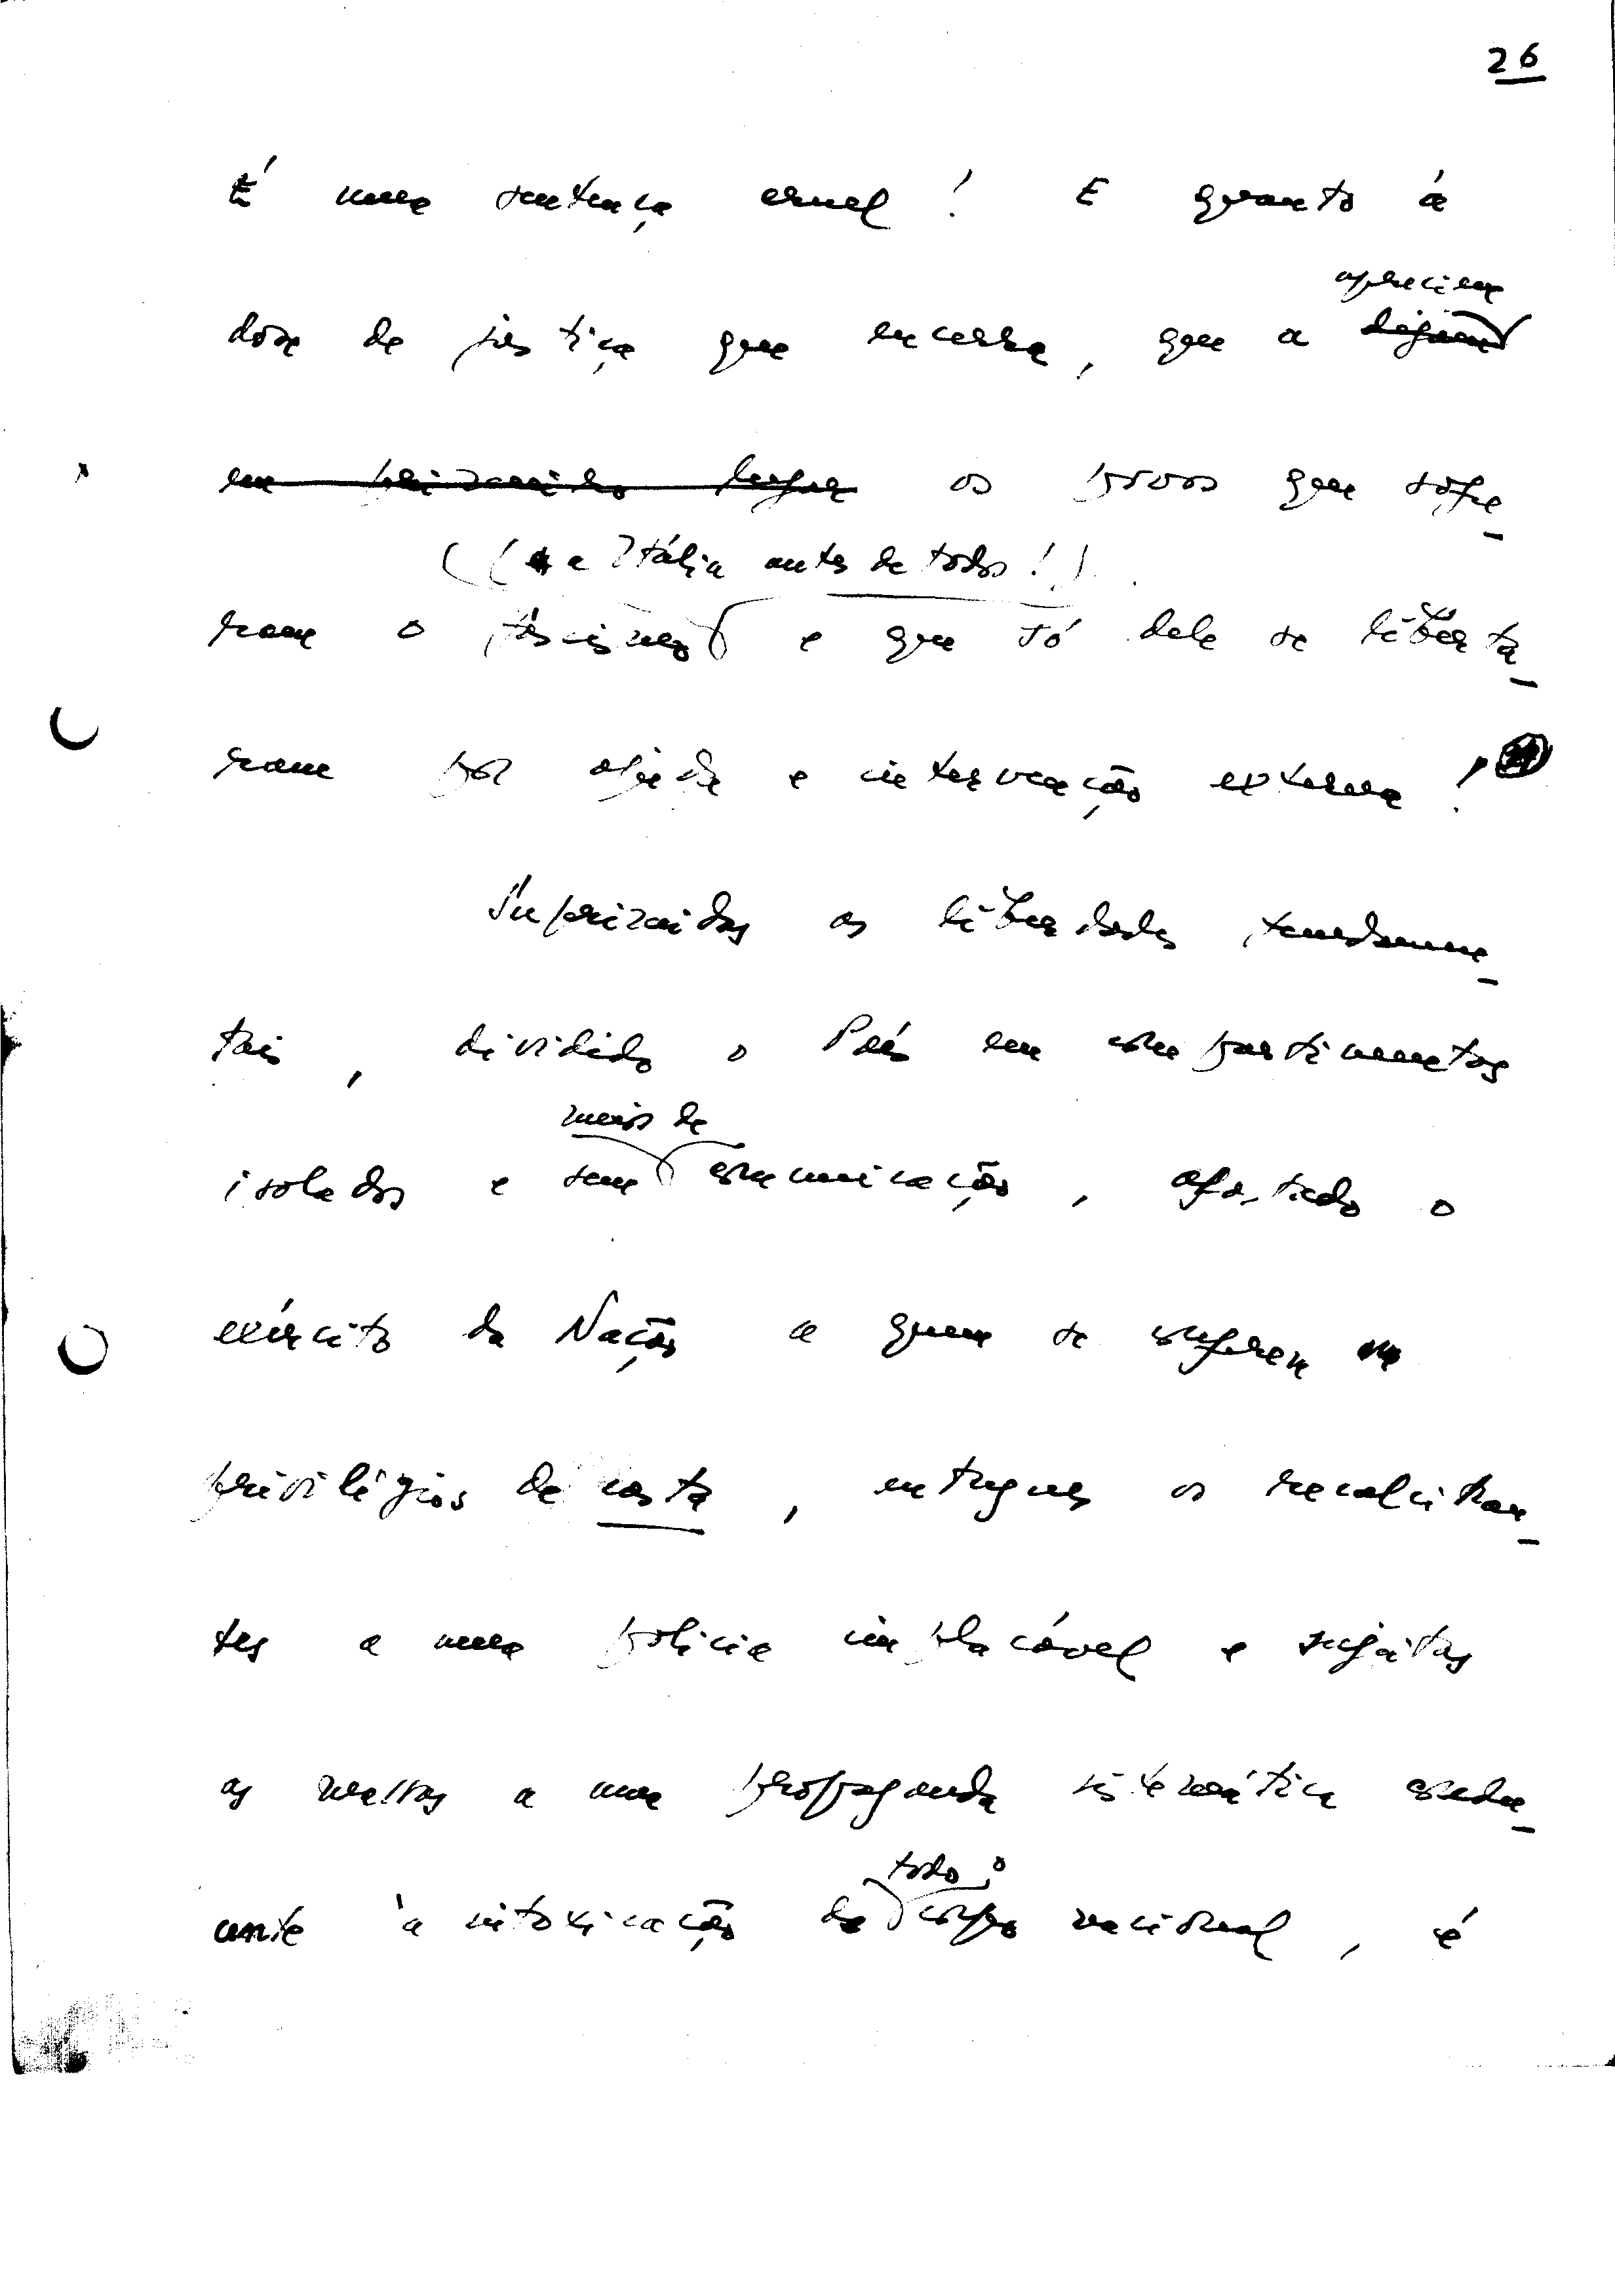 26
É uma sentença cruel! E quanto à
apreciem
dose de justiça que encerra, que a digam
em primeiro lugar os povos que sofre-
((a Itália antes de todos!)
ram o fascismo e que só dele se liberta-
ram por ajuda e intervenção externa!
Suprimidas as liberdades fundamen-
tais, dividido o País em compartimentos
meios de
isolados e sem comunicação, afastado o
exército da Nação a quem se conferem
privilégios de casta, entregues os recalcitran-
tes a uma polícia implacável e sujeitas
as massas a uma propaganda sistemática condu-
todo o
cente à intoxicação de corpo nacional, é